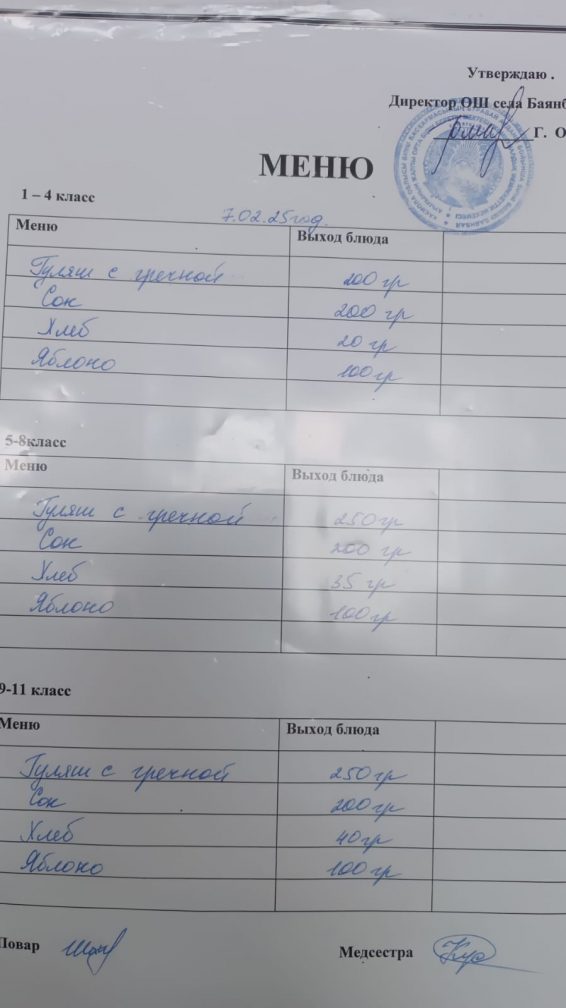 Утверждаю .
Директор ОШ села Баянб
Г. О
МЕНЮ
1 – 4 класс
7.02.25год.
Меню Выход блюда
Гуляш с гречной 200 гр
Сок 200 гр
Хлеб 20 гр
Яблоко 100 гр
5-8класс
Меню Выход блюда
Гуляш с гречной 250 гр
Сок 200 гр
Хлеб 35 гр
Яблоко 100 гр
9-11 класс
Меню Выход блюда
Гуляш с гречной 250 гр
Сок 200 гр
Хлеб 40 гр
Яблоко 100 гр
Повар Медсестра